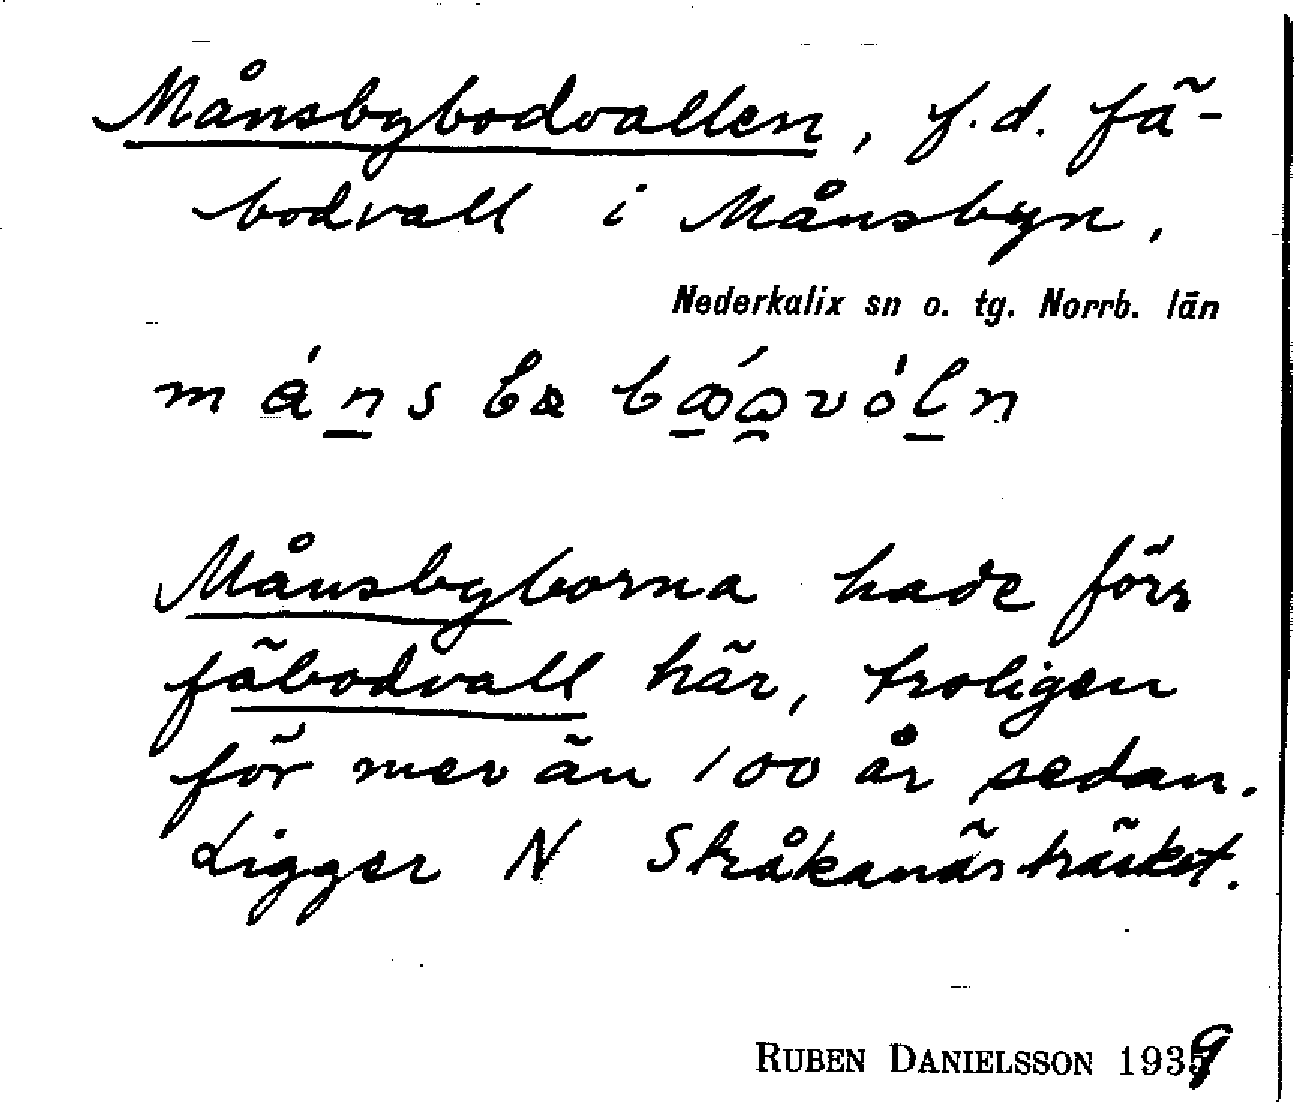 Månsbybodvallen, f.d. fä-
bodvall i Månsbyn,
Nederkalix sn o. tg. Norrb. län
Månsbyborna hade förr
fäbodvall här, troligen
för mer än 100 år sedan.
Ligger N Stråkanästräsket.
RUBEN DANIELSSON 1939